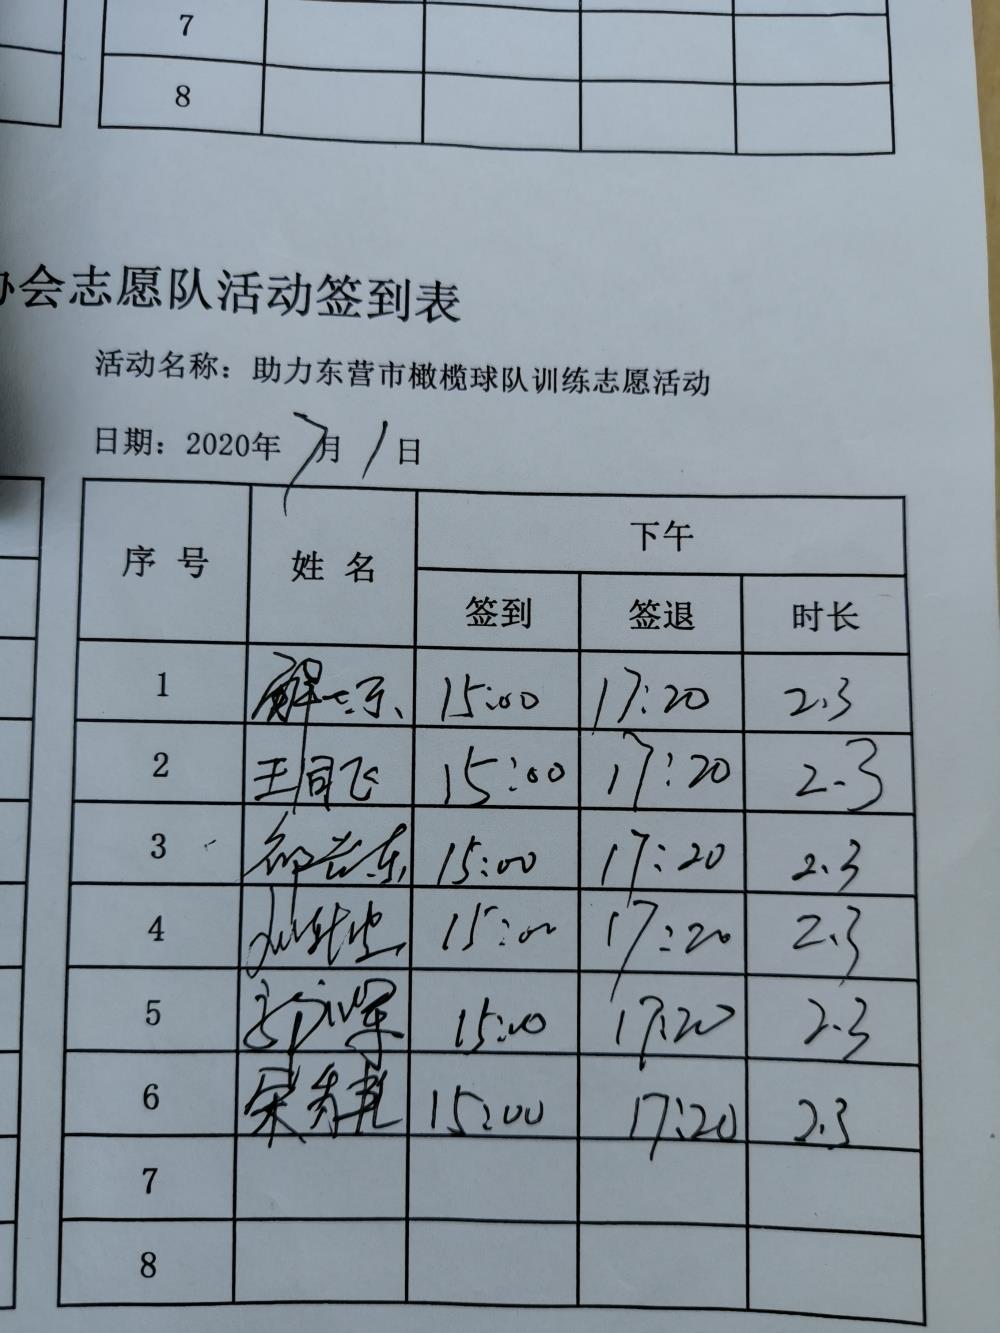 7
8
会志愿队活动签到表
活动名称：助力东营市橄榄球队训练志愿活动
日期：2020年 7月 1日
序号 姓名 下午
签到 签退 时长
1 15:00 17:20 2.3
2 王同飞 15:00 17:20 2.3
3 15:00 17:20 2.3
4 15:00 17:20 2.3
5 15:00 17:20 2.3
6 15:00 17:20 2.3
7
8